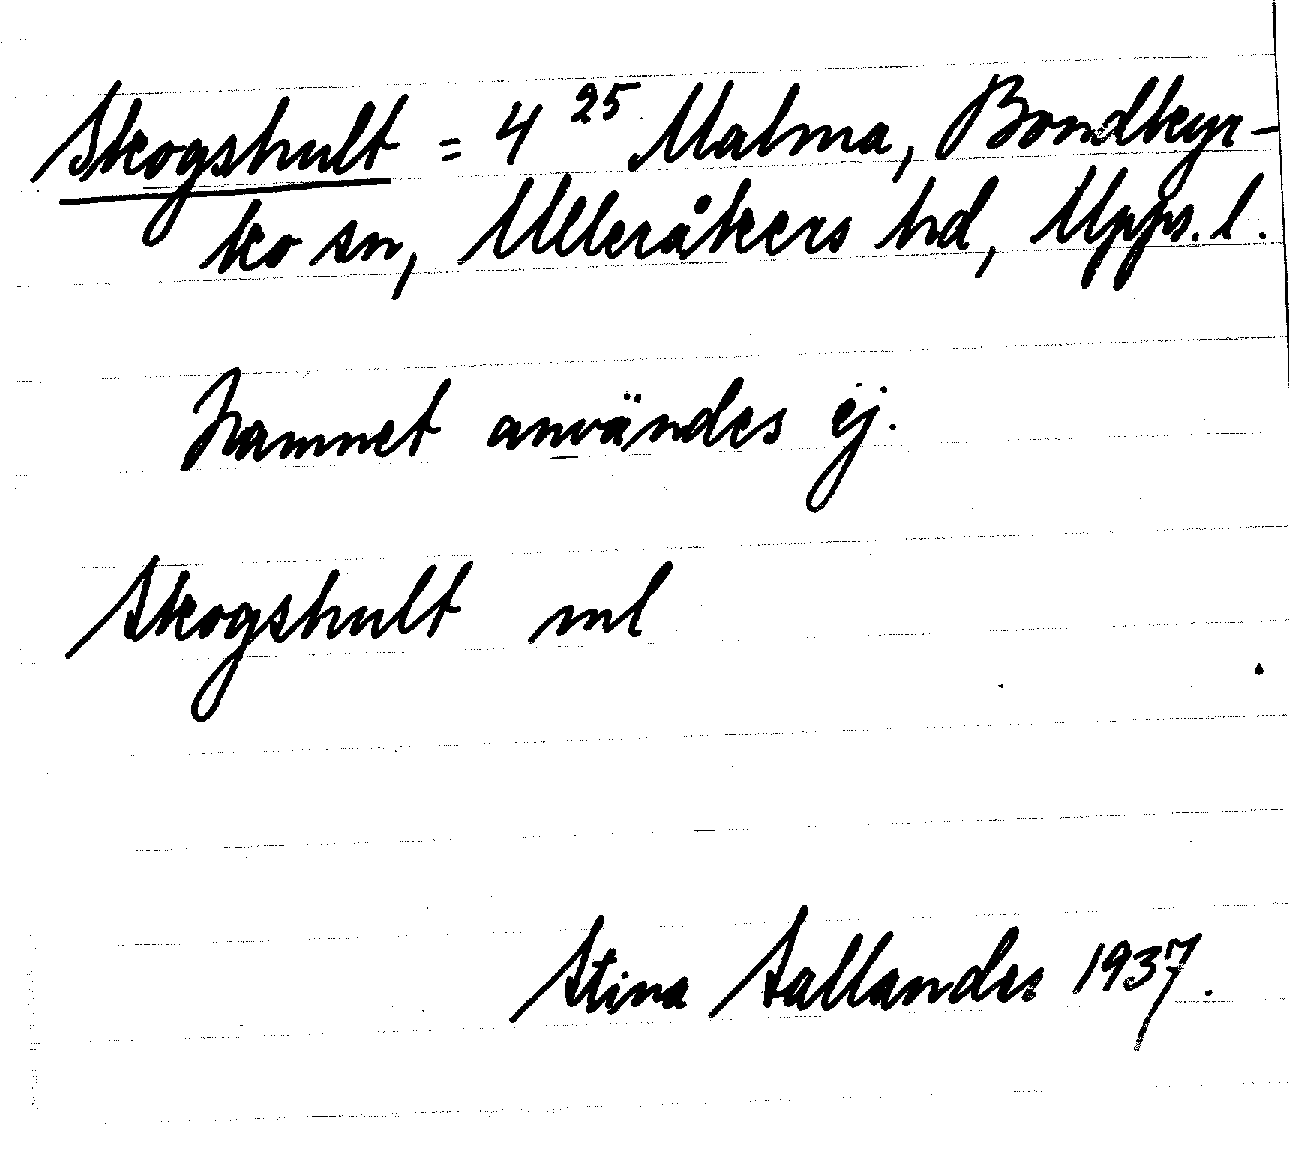 Skogshult = 4 25 Malma, Bondkyr-
ko sn, Ulleråkers hd, Upps. l.
Namnet användes ej.
Skogshult ml
Stina Sallander 1937.